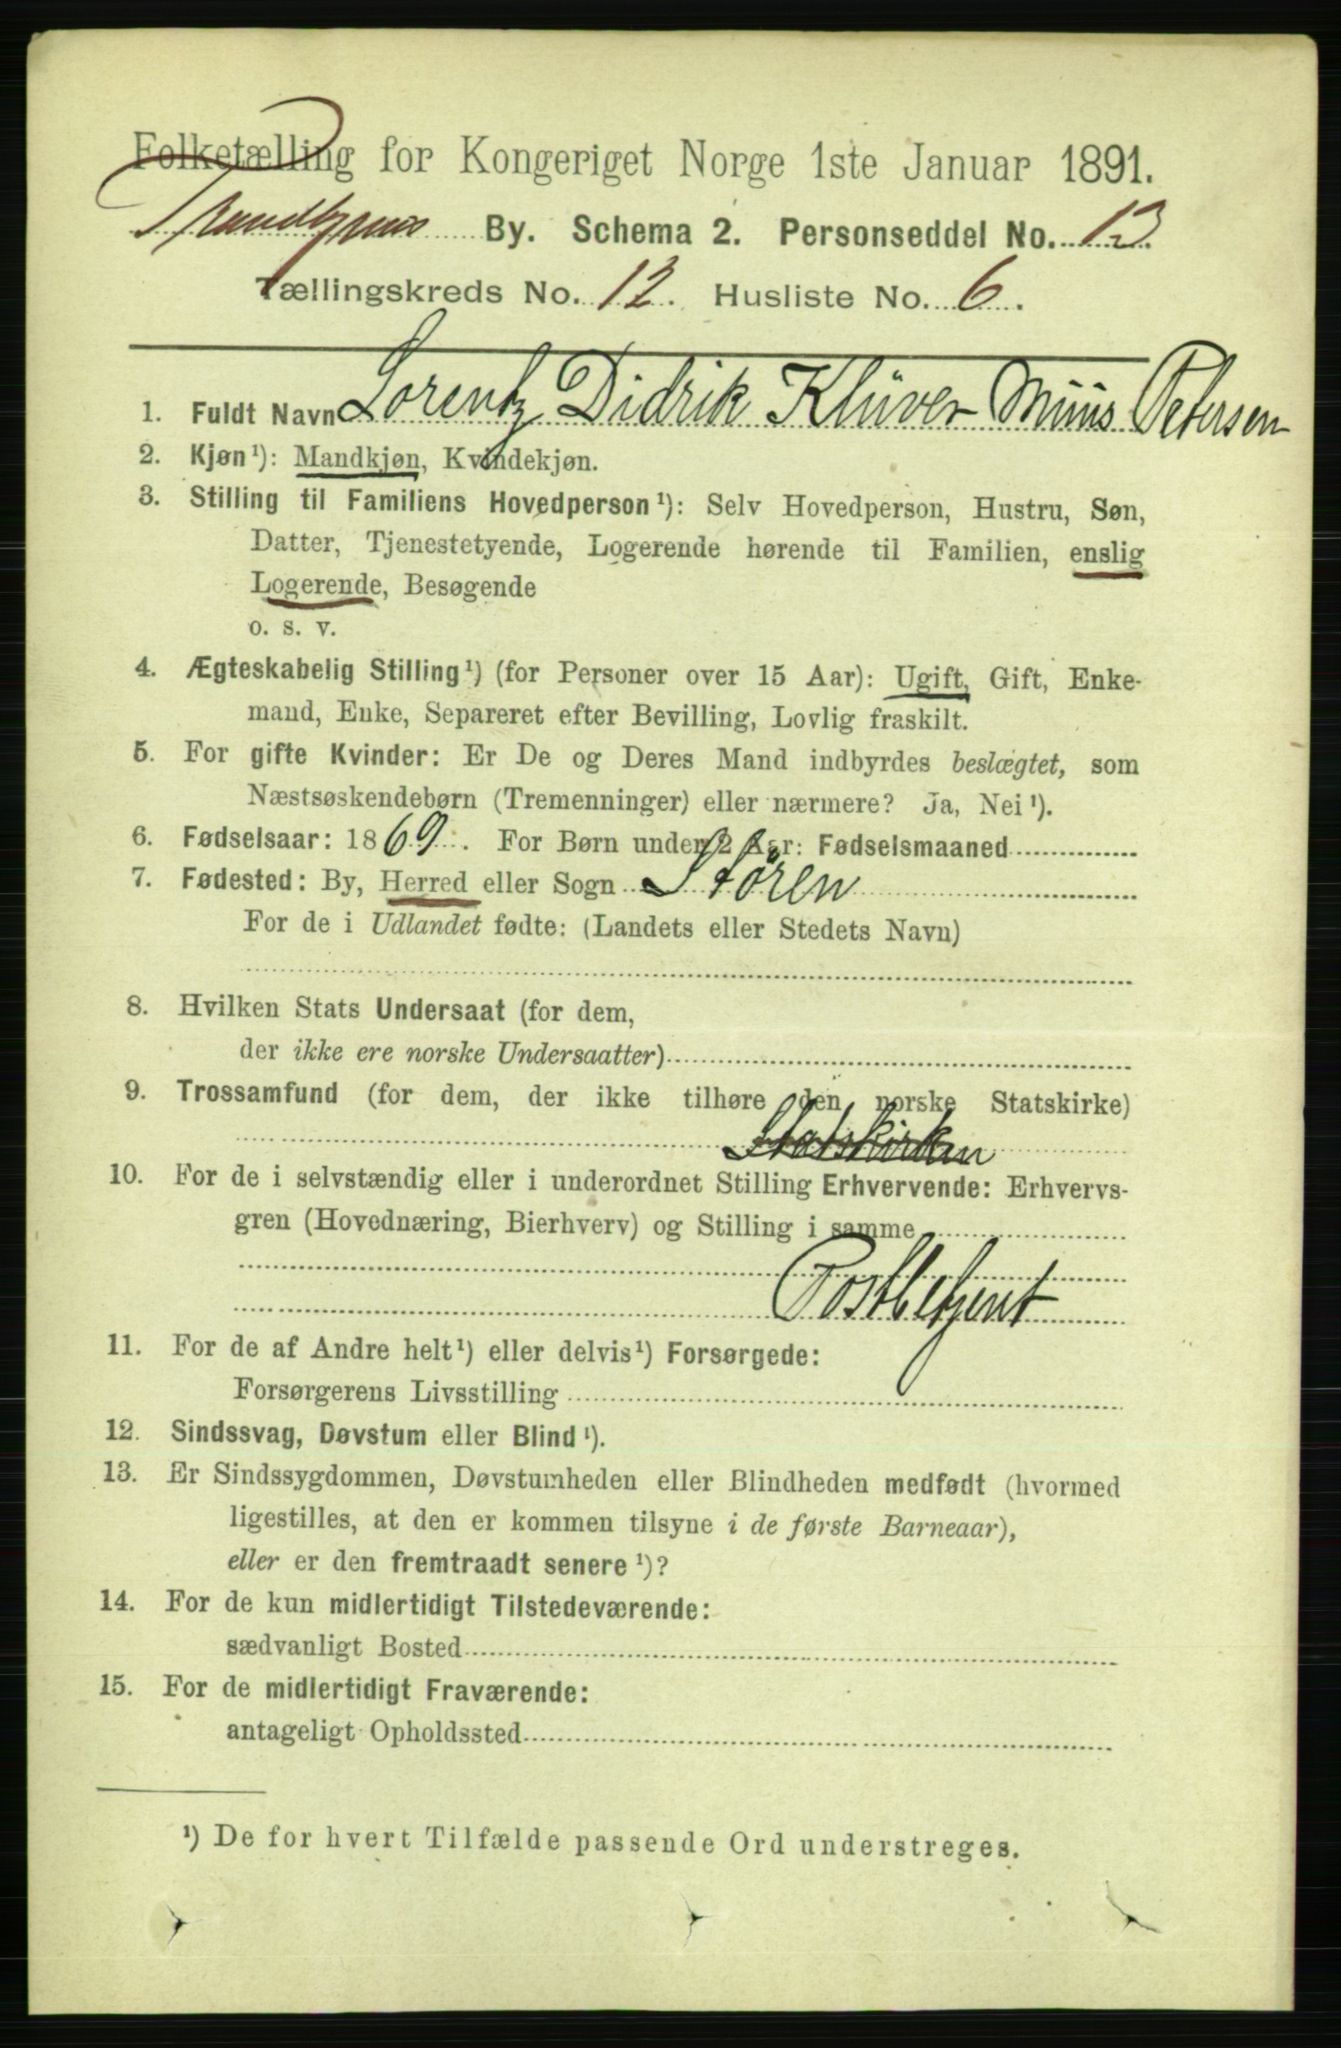 Folketælling for Kongeriget Norge 1ste Januar 1891.
Trondhjems By. Schema 2. Personseddel No. 13.
Tællingskreds No. 12. Husliste No. 6.
1. Fuldt Navn Lorentz Didrik Klüver Müüs Petersen
2. Kjøn¹): Mandkjøn, Kvindekjøn.
3. Stilling til Familiens Hovedperson¹): Selv Hovedperson, Hustru, Søn,
Datter, Tjenestetyende, Logerende hørende til Familien, enslig
Logerende, Besøgende
o. s. v.
4. Ægteskabelig Stilling¹) (for Personer over 15 Aar): Ugift, Gift, Enke-
mand, Enke, Separeret efter Bevilling, Lovlig fraskilt.
5. For gifte Kvinder: Er De og Deres Mand indbyrdes beslægtet, som
Næstsøskendebørn (Tremenninger) eller nærmere? Ja, Nei¹).
6. Fødselsaar: 1869. For Børn under 2 Aar: Fødselsmaaned
7. Fødested: By, Herred eller Sogn Støren
For de i Udlandet fødte: (Landets eller Stedets Navn)
8. Hvilken Stats Undersaat (for dem,
der ikke ere norske Undersaatter)
9. Trossamfund (for dem, der ikke tilhøre den norske Statskirke)
Statskirken
10. For de i selvstændig eller i underordnet Stilling Erhvervende: Erhvervs-
gren (Hovednæring, Bierhverv) og Stilling i samme
Postbetjent
11. For de af Andre helt¹) eller delvis¹) Forsørgede:
Forsørgerens Livsstilling
12. Sindssvag, Døvstum eller Blind¹).
13. Er Sindssygdommen, Døvstumheden eller Blindheden medfødt (hvormed
ligestilles, at den er kommen tilsyne i de første Barneaar),
eller er den fremtraadt senere¹)?
14. For de kun midlertidigt Tilstedeværende:
sædvanligt Bosted
15. For de midlertidigt Fraværende:
antageligt Opholdssted
¹) De for hvert Tilfælde passende Ord understreges.